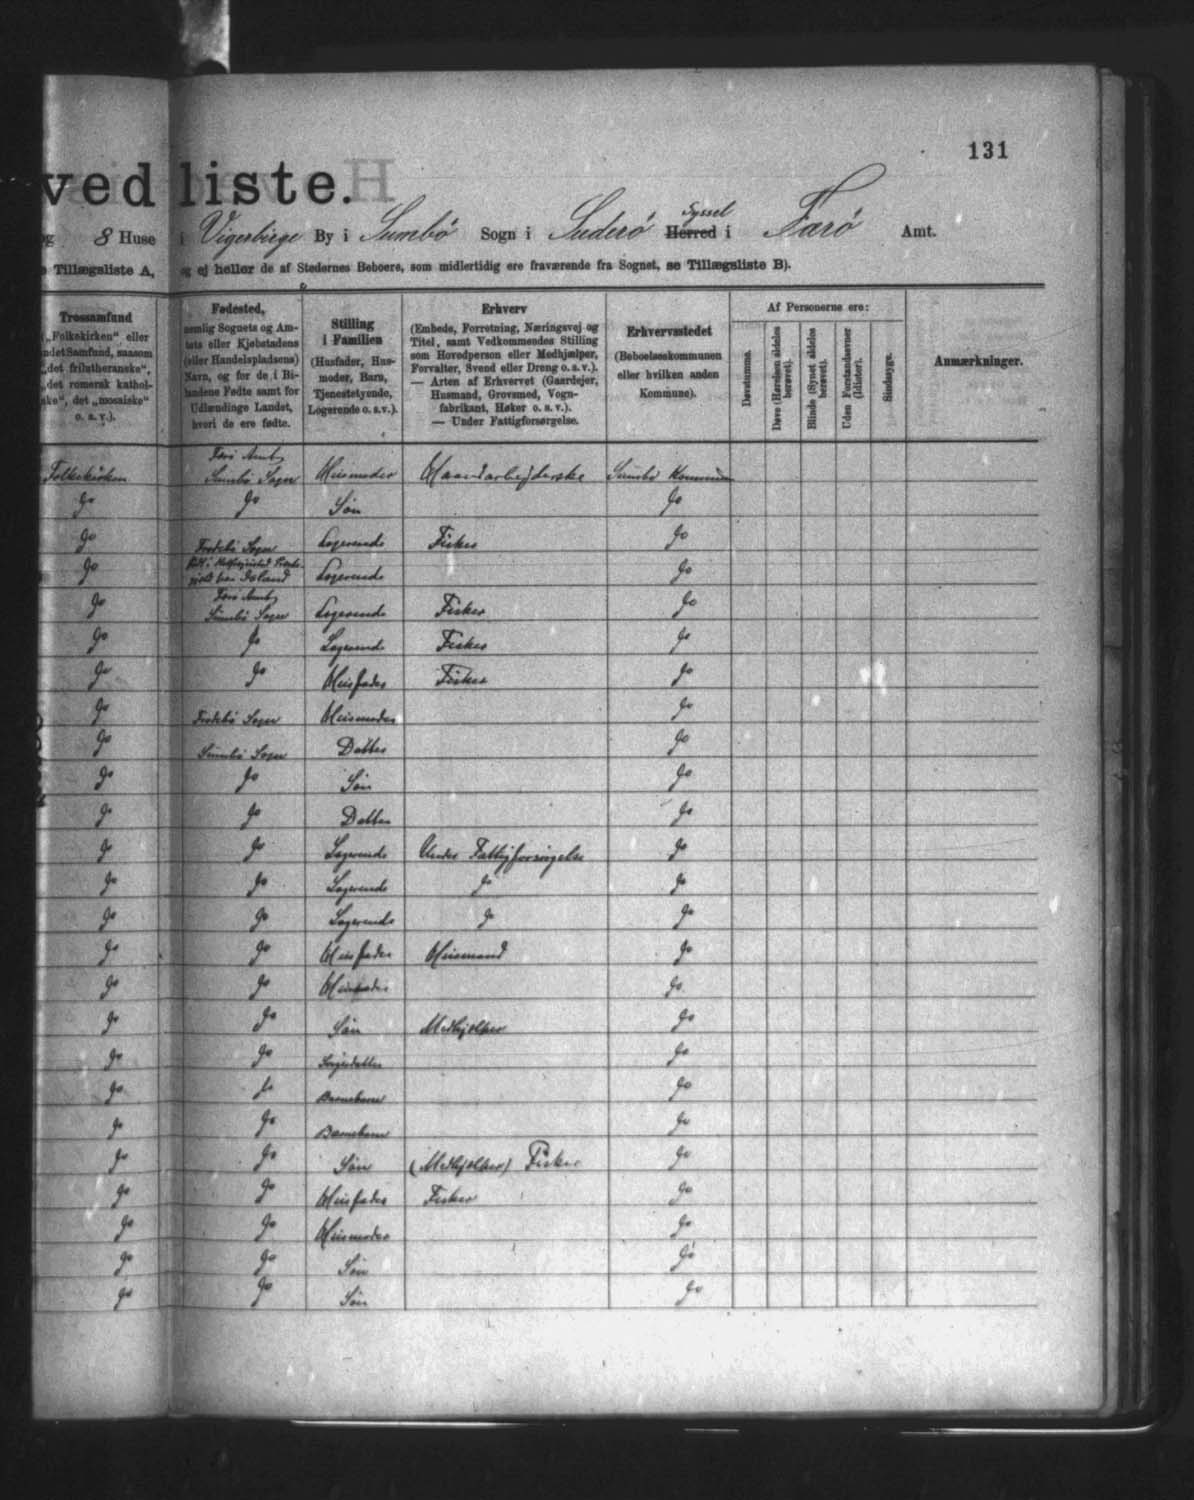 131
ved liste.
og 8 Huse i Vigerbirge By i Sumbö Sogn i Suderö Herred Syssel i Farö Amt.
Tillægsliste A, og ej heller de af Stedernes Beboere, som midlertidig ere fraværende fra Sognet, se Tillægsliste B).
Trossamfund
(„Folkekirken" eller
andet Samfund, saasom
„det frilutheranske",
„det romersk kathol-
ske", det „mosaiske"
o. s. v.).
Fødested,
nemlig Sognets og Am-
tets eller Kjøbstadens
(eller Handelspladsens)
Navn, og for de i Bi-
landene Fødte samt for
Udlændinge Landet,
hvori de ere fødte.
Stilling
i Familien
(Husfader, Hus-
moder, Barn,
Tjenestetyende,
Logerende o. s. v.).
Erhverv
(Embede, Forretning, Næringsvej og
Titel, samt Vedkommendes Stilling
som Hovedperson eller Medhjælper,
Forvalter, Svend eller Dreng o. s. v.).
— Arten af Erhvervet (Gaardejer,
Husmand, Grovsmed, Vogn-
fabrikant, Høker o. s. v.).
— Under Fattigforsørgelse.
Erhvervsstedet
(Beboelseskommunen
eller hvilken anden
Kommune).
Af Personerne ere:
Døvstumme.
Døve (Hørelsen aldeles
berøvet).
Blinde (Synet aldeles
berøvet).
Uden Forstandsevner
(Idioter).
Sindssyge.
Anmærkninger.
Folkekirken Farö Amt, Sumbö Sogn Huusmoder Haandarbejderske Sumbö Kommune
do do Sön do
do Frodebö Sogn Logerende Fisker do
do Island Logerende do
do Farö Amt, Sumbö Sogn Logerende Fisker do
do do Logerende Fisker do
do do Huusfader Fisker do
do Frodebö Sogn Huusmoder do
do Sumbö Sogn Datter do
do do Sön do
do do Datter do
do do Logerende Under Fattigforsørgelse do
do do Logerende do do
do do Logerende do do
do do Huusfader Huusmand do
do do Huusmoder do
do do Sön Medhjælper do
do do do
do do Barnebarn do
do do Barnebarn do
do do Sön (Medhjælper) Fisker do
do do Huusfader Fisker do
do do Huusmoder do
do do Sön do
do do Sön do